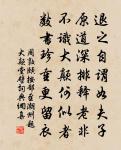 退之自謂如夫子
原道深排釋老非
不識大顛何似者
數書珍重更留衣
周敦頤按部至潮州題
大顛堂壁詞典網集